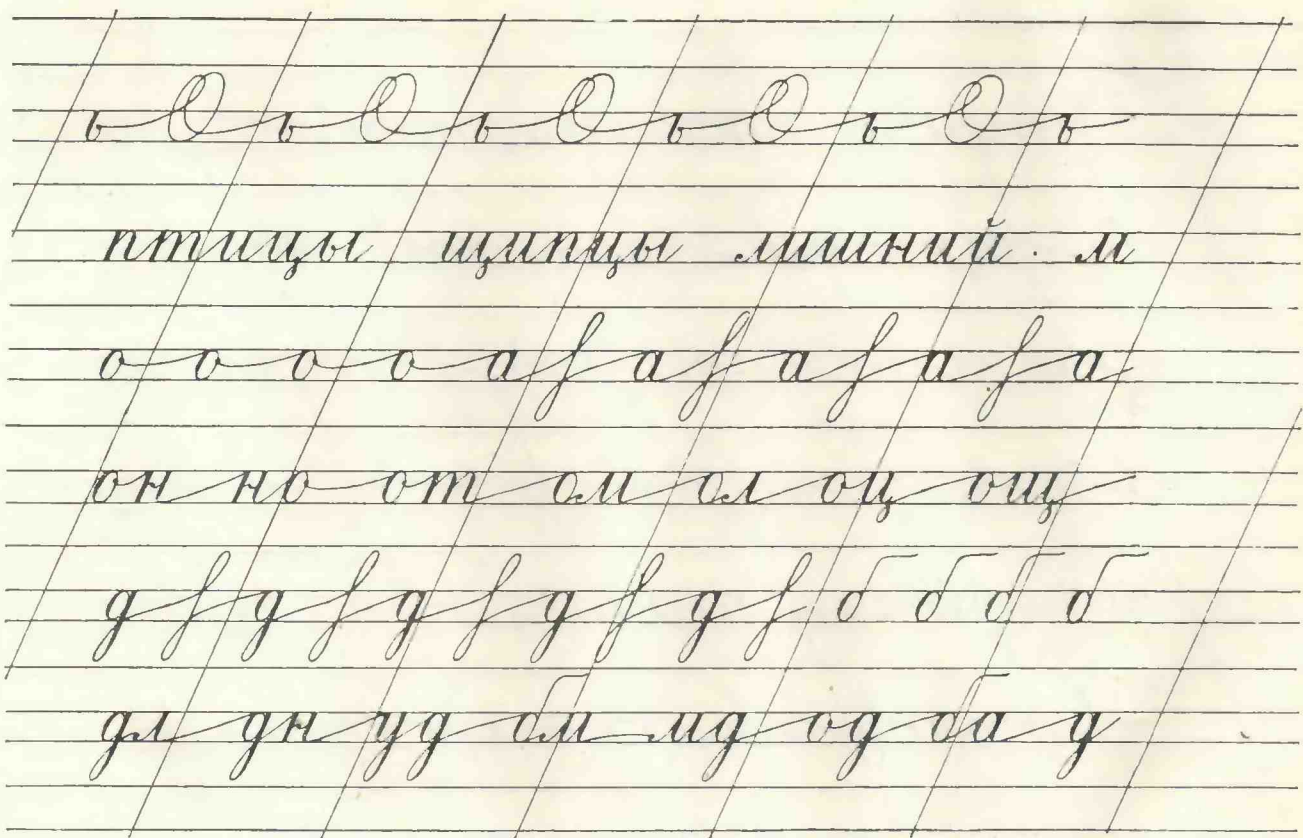 птицы щипцы лишний м
о о о о а а а а а
он но от ом ол оц ощ
д д д д д б б б б
дл дн уд бм мд од ба у